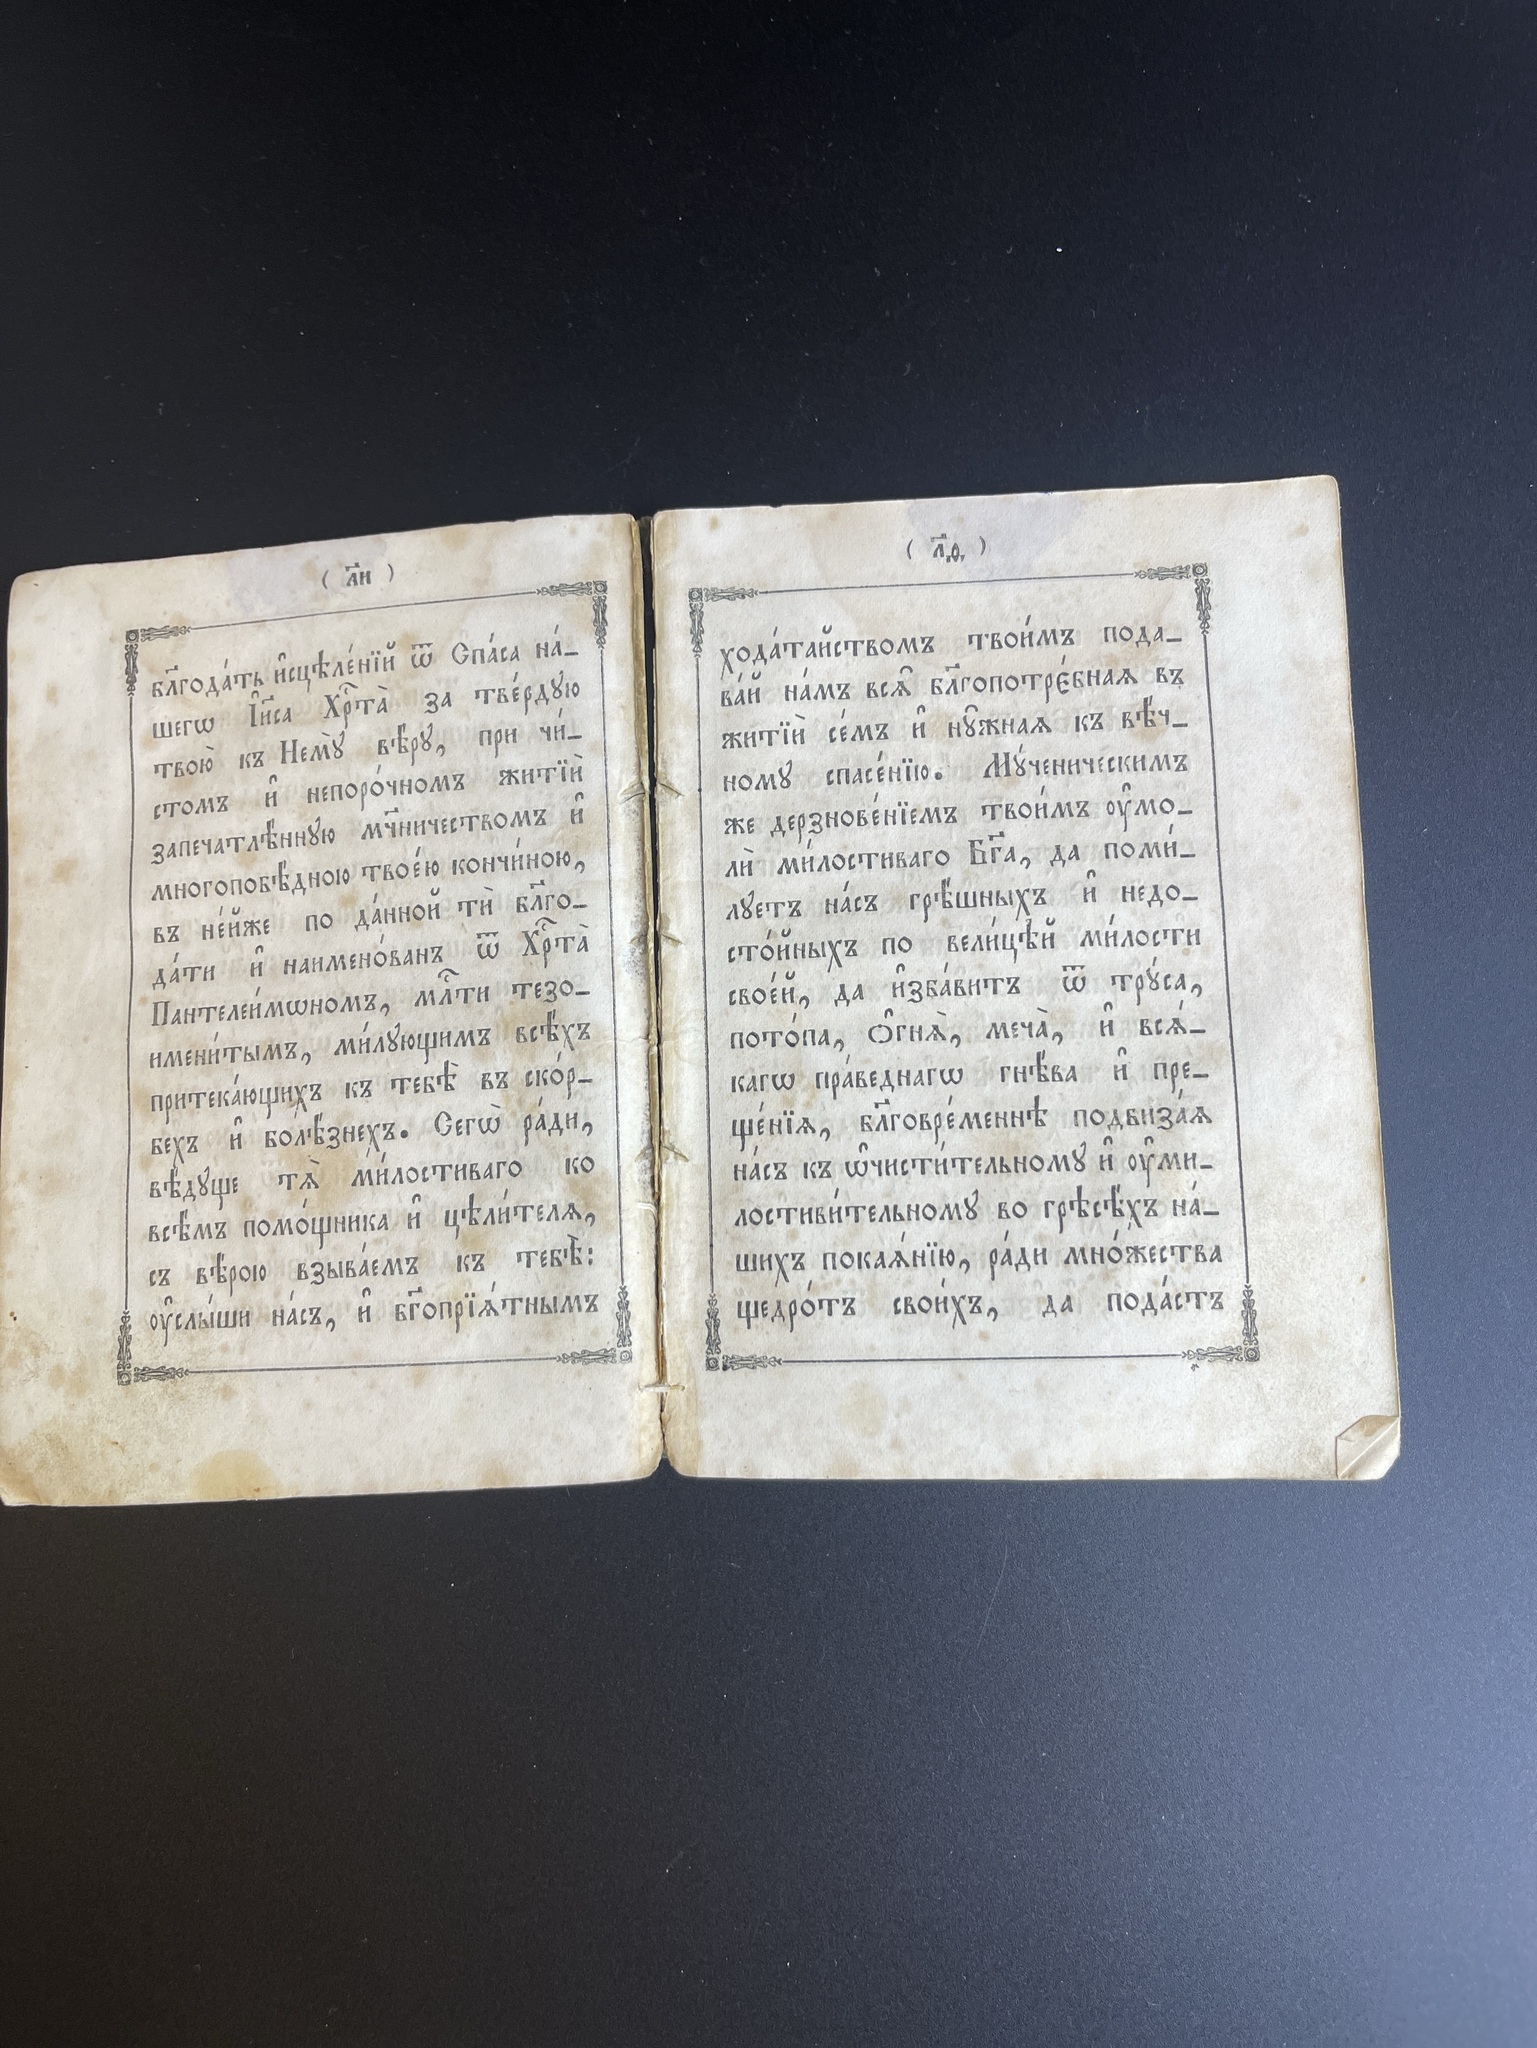 ( л҃и )
бл҃года́ть и҆сцѣле́нїй ѿ Спа́са на́-
шегѡ І҆и҃са Хрⷭ҇та̀ за тве́рдую
твою̀ къ Немꙋ̀ вѣ́рꙋ, при чи́-
стомъ и҆ непоро́чномъ житїѝ
запечатлѣ́ннꙋю мч҃ничествомъ и҆
многопобѣ́дною твое́ю кончи́ною,
въ не́йже по да́нной тѝ бл҃го-
да́ти и҆ наимено́ванъ ѿ Хрⷭ҇та̀
Пантелеи́мѡномъ, млⷭ҇ти тезо-
имени́тымъ, ми́лꙋющимъ всѣ́хъ
притека́ющихъ къ тебѣ̀ въ ско́р-
бехъ и҆ болѣ́знехъ. Сегѡ̀ ра́ди,
вѣ́дꙋще тѧ̀ ми́лостиваго ко
всѣ́мъ помо́щника и҆ цѣли́телѧ,
съ вѣ́рою взыва́емъ къ тебѣ̀:
ᲂу҆слы́ши на́съ, и҆ бг҃опрїѧ́тнымъ
( л҃ѳ )
хода́тайствомъ твои́мъ пода-
ва́й на́мъ всѧ̑ бл҃гопотрє́бнаѧ въ
житїѝ се́мъ и҆ нꙋ̑жнаѧ къ вѣ́ч-
номꙋ спасе́нїю. Мꙋ́ченическимъ
же дерзнове́нїемъ твои́мъ ᲂу҆мо-
лѝ ми́лостиваго Бг҃а, да поми́-
лꙋетъ на́съ грѣ́шныхъ и҆ недо-
сто́йныхъ по вели́цѣй ми́лости
свое́й, да и҆зба́витъ ѿ трꙋ́са,
пото́па, Ѻ҆гнѧ̀, меча̀, и҆ всѧ́-
кагѡ пра́веднагѡ гнѣ́ва и҆ пре-
ще́нїѧ, бл҃говре́меннѣ подвиза́ѧ
на́съ къ ѡ҆чисти́тельномꙋ и҆ ᲂу҆ми-
лостиви́тельномꙋ во грѣсѣ́хъ на́-
шихъ покаѧ́нїю, ра́ди мно́жества
щедро́тъ свои́хъ, да пода́стъ